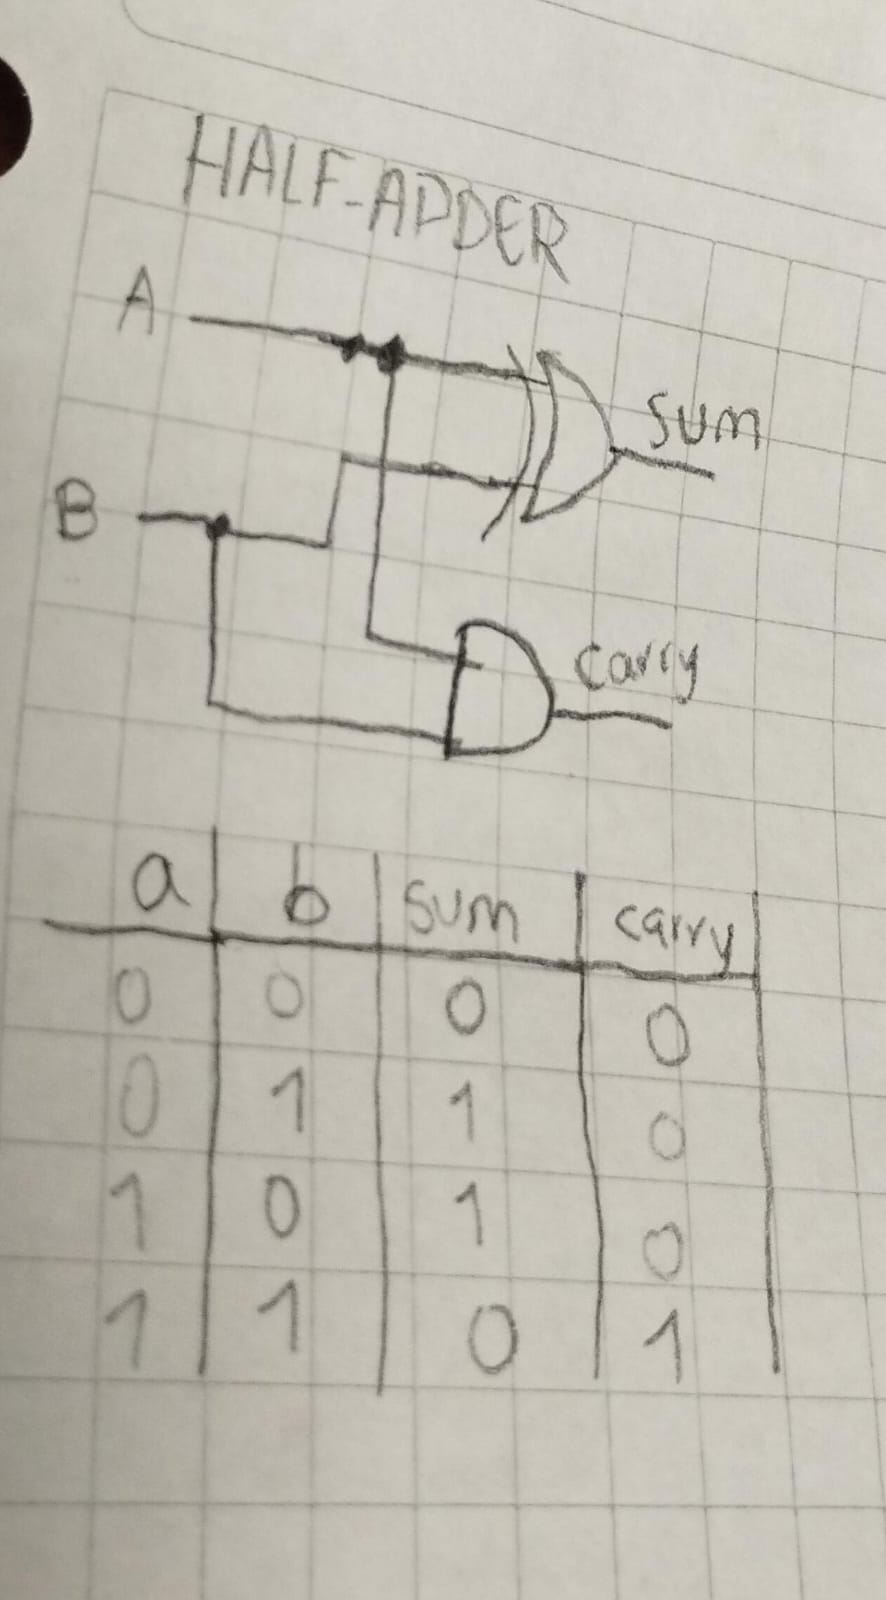 HALF-ADDER
A
sum
B
carry
a b sum carry
0 0 0 0
0 1 1 0
1 0 1 0
1 1 0 1